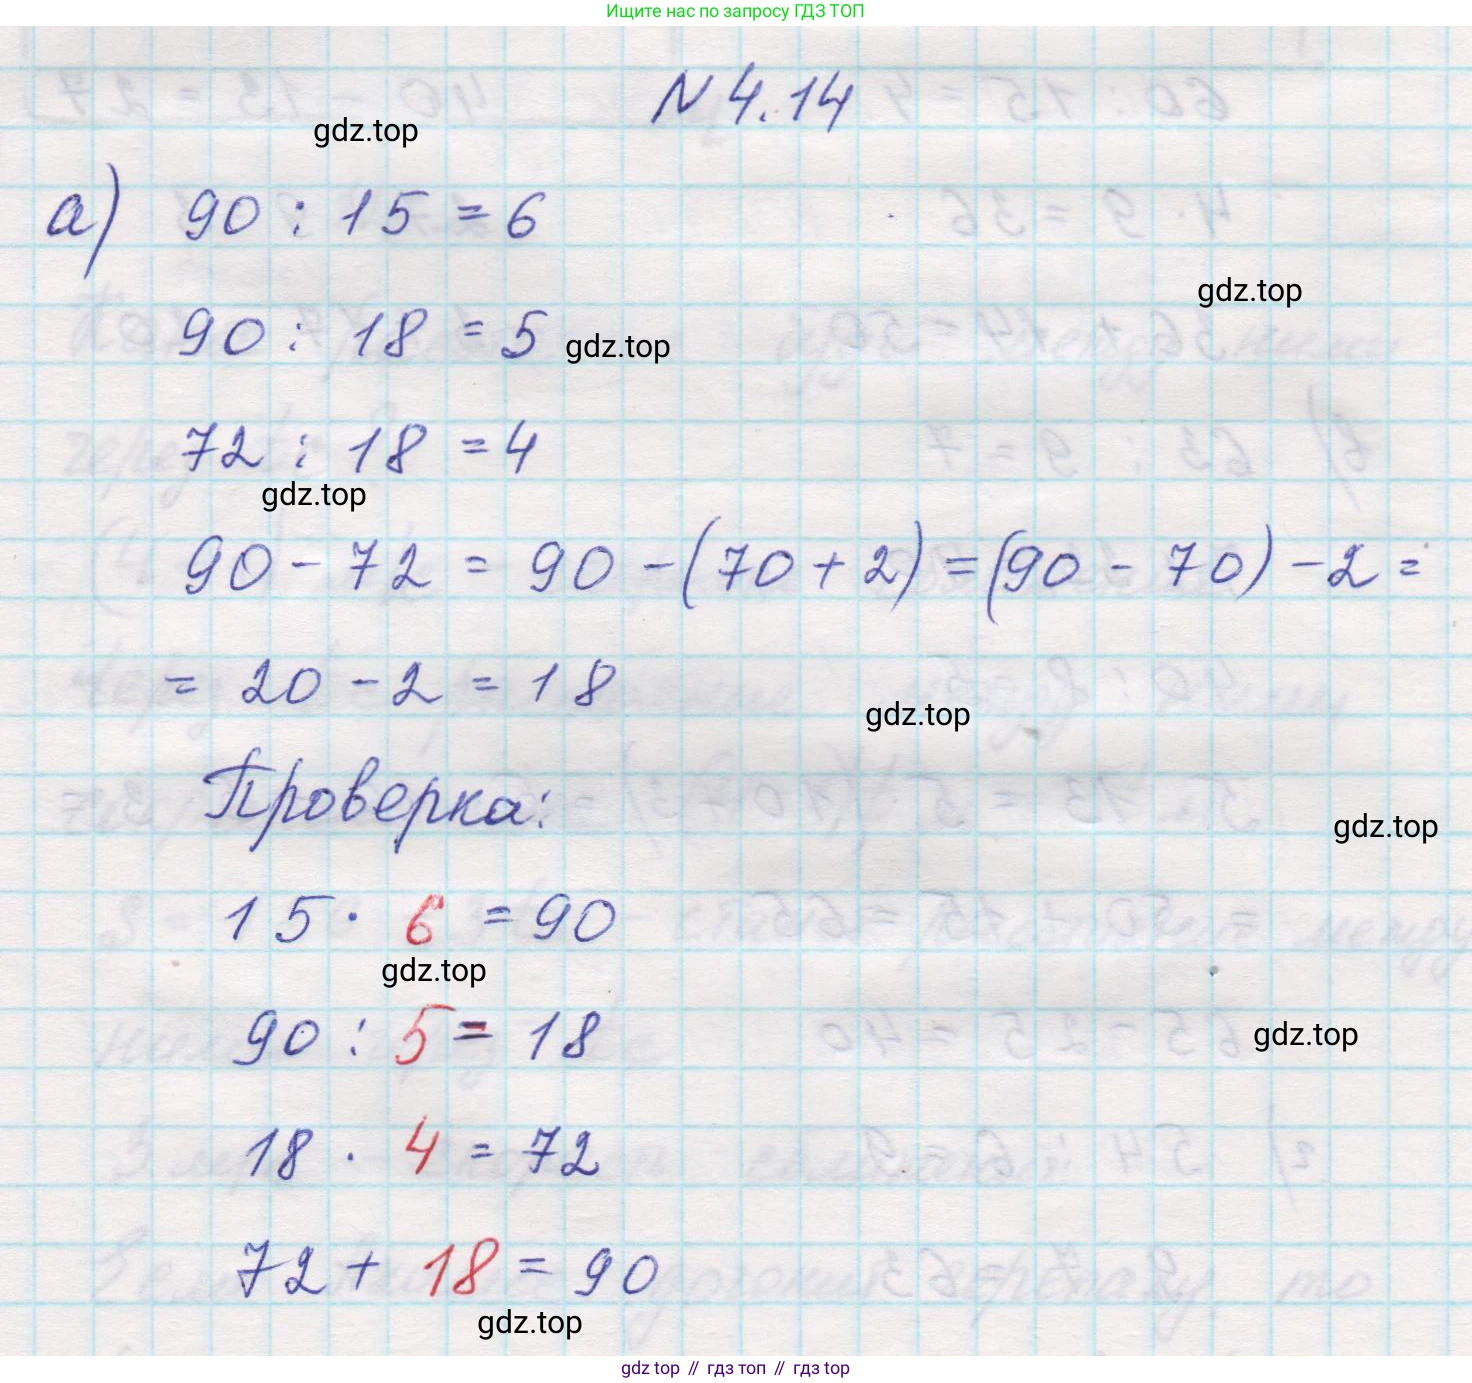 Ищите нас по запросу ГДЗ ТОП
N 4.14
gdz.top
а) 90 : 15 = 6
gdz.top
90 : 18 = 5
gdz.top
72 : 18 = 4
gdz.top
90 - 72 = 90 - (70 + 2) = (90 - 70) - 2 =
= 20 - 2 = 18
gdz.top
Проверка:
gdz.top
15 · 6 = 90
gdz.top
90 : 5 = 18
gdz.top
18 · 4 = 72
72 + 18 = 90
gdz.top
gdz top // гдз топ // гдз top